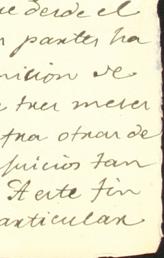 ue desde el
partes ha
nicion de
tres meses
tra otras de
juicios tan
A este fin
articular